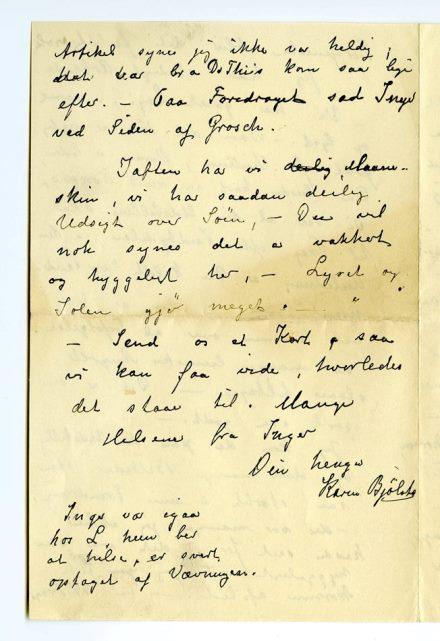 Artikel synes jeg ikke var heldig,
det var bra Dr Thiis kom saa lige
efter. – Paa Foredraget sad Inger
ved Siden af Grosch.
Iaften har vi deilig Maane-
skin, vi har saadan deilig
Udsigt over Søen, – Du vil
nok synes det er vakkert
og hyggeligt her, – Lyset og
Solen gjør meget. –
– Send os et Kort, saa
vi kan faa vide, hvorledes
det staar til. Mange
Hilsener fra Inger
Din hengivne
Karen Bjølstad
Inger var igaar
hos L, hun ber
at hilse, er svært
optaget af Vævningen.